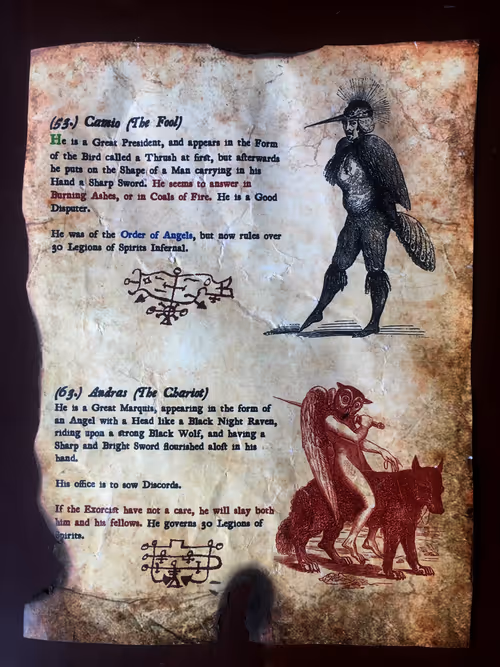 (53.) Camio (The Fool)
He is a Great President, and appears in the Form
of the Bird called a Thrush at first, but afterwards
he puts on the Shape of a Man carrying in his
Hand a Sharp Sword. He seems to answer in
Burning Ashes, or in Coals of Fire. He is a Good
Disputer.
He was of the Order of Angels, but now rules over
30 Legions of Spirits Infernal.
(63.) Andras (The Chariot)
He is a Great Marquis, appearing in the form of
an Angel with a Head like a Black Night Raven,
riding upon a strong Black Wolf, and having a
Sharp and Bright Sword flourished aloft in his
hand.
His office is to sow Discords.
If the Exorcist have not a care, he will slay both
him and his fellows. He governs 30 Legions of
Spirits.